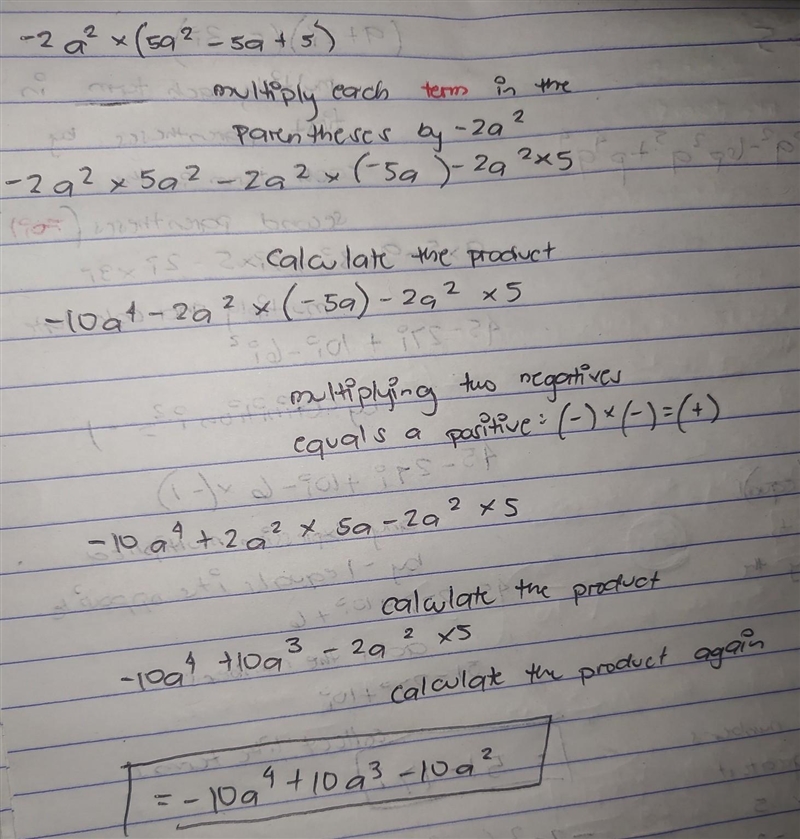 -2a² × (5a² - 5a + 5)
multiply each term in the
parentheses by -2a²
-2a² × 5a² - 2a² × (-5a) - 2a² × 5
calculate the product
-10a⁴ - 2a² × (-5a) - 2a² × 5
multiplying two negatives
equals a positive: (-) × (-) = (+)
-10a⁴ + 2a² × 5a - 2a² × 5
calculate the product
-10a⁴ + 10a³ - 2a² × 5
calculate the product again
= -10a⁴ + 10a³ - 10a²